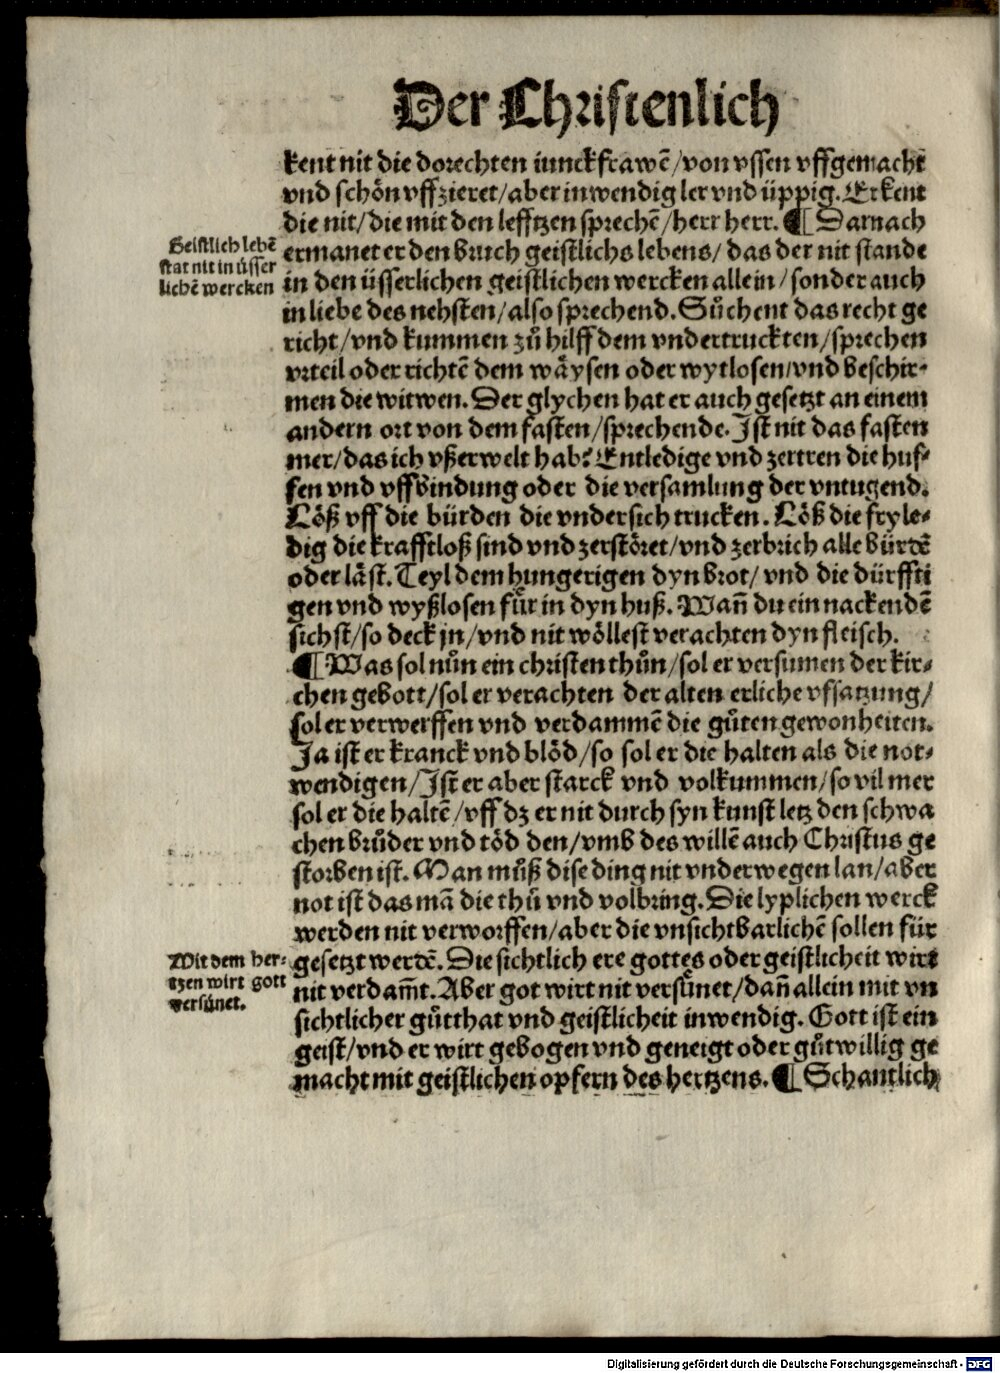 Der Christenlich
kent nit die dorechten iunckfrawē/von vssen vffgemacht
vnd schön vffzieret/aber inwendig ler vnd üppig. Erkent
die nit/die mit den lefftzen sprechē/herr herr. ¶ Darnach
Geistlich lebē
stat nit in üsser
lichē wercken
ermanet er den bruch geistlichs lebens/ das der nit stande
in den üsserlichen geistlichen wercken allein/sonder auch
in liebe des nehsten/also sprechend. Sůchent das recht ge
richt/vnd kummen zů hilff dem vndertruckten/sprechen
vrteil oder richtē dem wäysen oder wytlosen/vnd beschir-
men die witwen. Der glychen hat er auch gesetzt an einem
andern ort von dem fasten/sprechende. Ist nit das fasten
mer/das ich vßerwelt hab? Entledige vnd zertren die huf-
fen vnd vffbindung oder die versamlung der vntugend.
Löß vff die bürden die vndersich trucken. Löß die fry le-
dig die krafftloß sind vnd zerstöret/vnd zerbrich alle bürdē
oder läst. Teyl dem hungerigen dyn brot/ vnd die dürffti
gen vnd wyßlosen für in dyn huß. Wañ du ein nackendē
sichst/so deck jn/vnd nit wöllest verachten dyn fleisch.
¶ Was sol nůn ein christen thůn/sol er versumen der kir-
chen gebott/sol er verachten der alten erliche vfsatzung/
sol er verwerffen vnd verdammē die gůten gewonheiten.
Ja ist er kranck vnd blöd/so sol er die halten als die not-
wendigen/Ist er aber starck vnd volkummen/so vil mer
sol er die haltē/vff dz er nit durch syn kunst letz den schwa
chen brůder vnd töd den/vmb des willē auch Christus ge
storben ist. Man můß dise ding nit vnderwegen lan/aber
not ist das mā die thů vnd volbring. Die lyplichen werck
werden nit verworffen/aber die vnsichtbarlichē sollen für
Mit dem her-
tzen wirt gott
versünet.
gesetzt werdē. Die sichtlich ere gottes oder geistlicheit wirt
nit verdam̄t. Aber got wirt nit versünet/dañ allein mit vn
sichtlicher gůtthat vnd geistlicheit inwendig. Gott ist ein
geist/vnd er wirt gebogen vnd geneigt oder gůtwillig ge
macht mit geistlichen opfern des hertzens. ¶ Schantlich
Digitalisierung gefördert durch die Deutsche Forschungsgemeinschaft - DFG